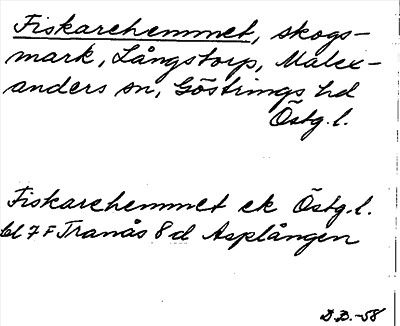 Fiskarehemmet, skogs-
mark, Långstorp, Malex-
anders sn, Göstrings hd
Östg. l.
Fiskarehemmet ek Östg. l.
bl 7 F Tranås 8 d Asplången
D.B.-58